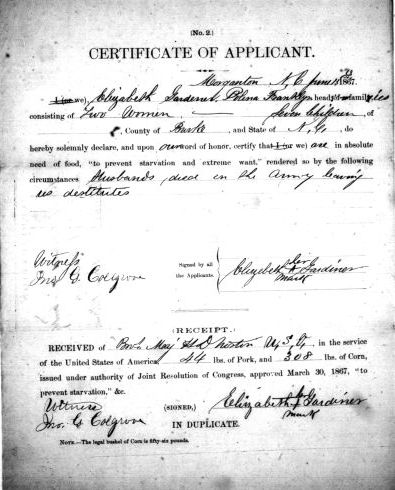 (No. 2.)
CERTIFICATE OF APPLICANT.
Morganton N.C. June 1867.
I (or we) Elizabeth Gardener, Polina Franklyn heads of families
consisting of Two Women — Seven Children, of
County of Burke, and State of N. C., do
hereby solemnly declare, and upon our word of honor, certify that I (or we) are in absolute
need of food, "to prevent starvation and extreme want," rendered so by the following
circumstances Husbands died in the Army leaving
us destitutes
Witness
Jno. G. Colgrove
Signed by all
the Applicants.
her
Elizebeth X Gardiner
mark
(RECEIPT.
RECEIVED of Bvt. Maj H D Norton U.S.A., in the service
of the United States of America, 44 lbs. of Pork, and 308 lbs. of Corn,
issued under authority of Joint Resolution of Congress, approved March 30, 1867, "to
prevent starvation," &c.
Witness
(SIGNED,)
Elizabeth X Gardiner
mark
Jno. G. Colgrove
IN DUPLICATE.
NOTE.—The legal bushel of Corn is fifty-six pounds.